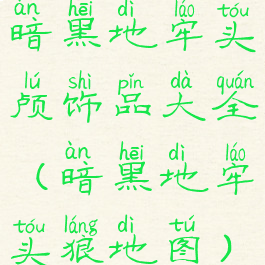 àn hēi dì láo tóu
暗黑地牢头
lú shì pǐn dà quán
颅饰品大全
àn hēi dì láo
（暗黑地牢
tóu láng dì tú
头狼地图）